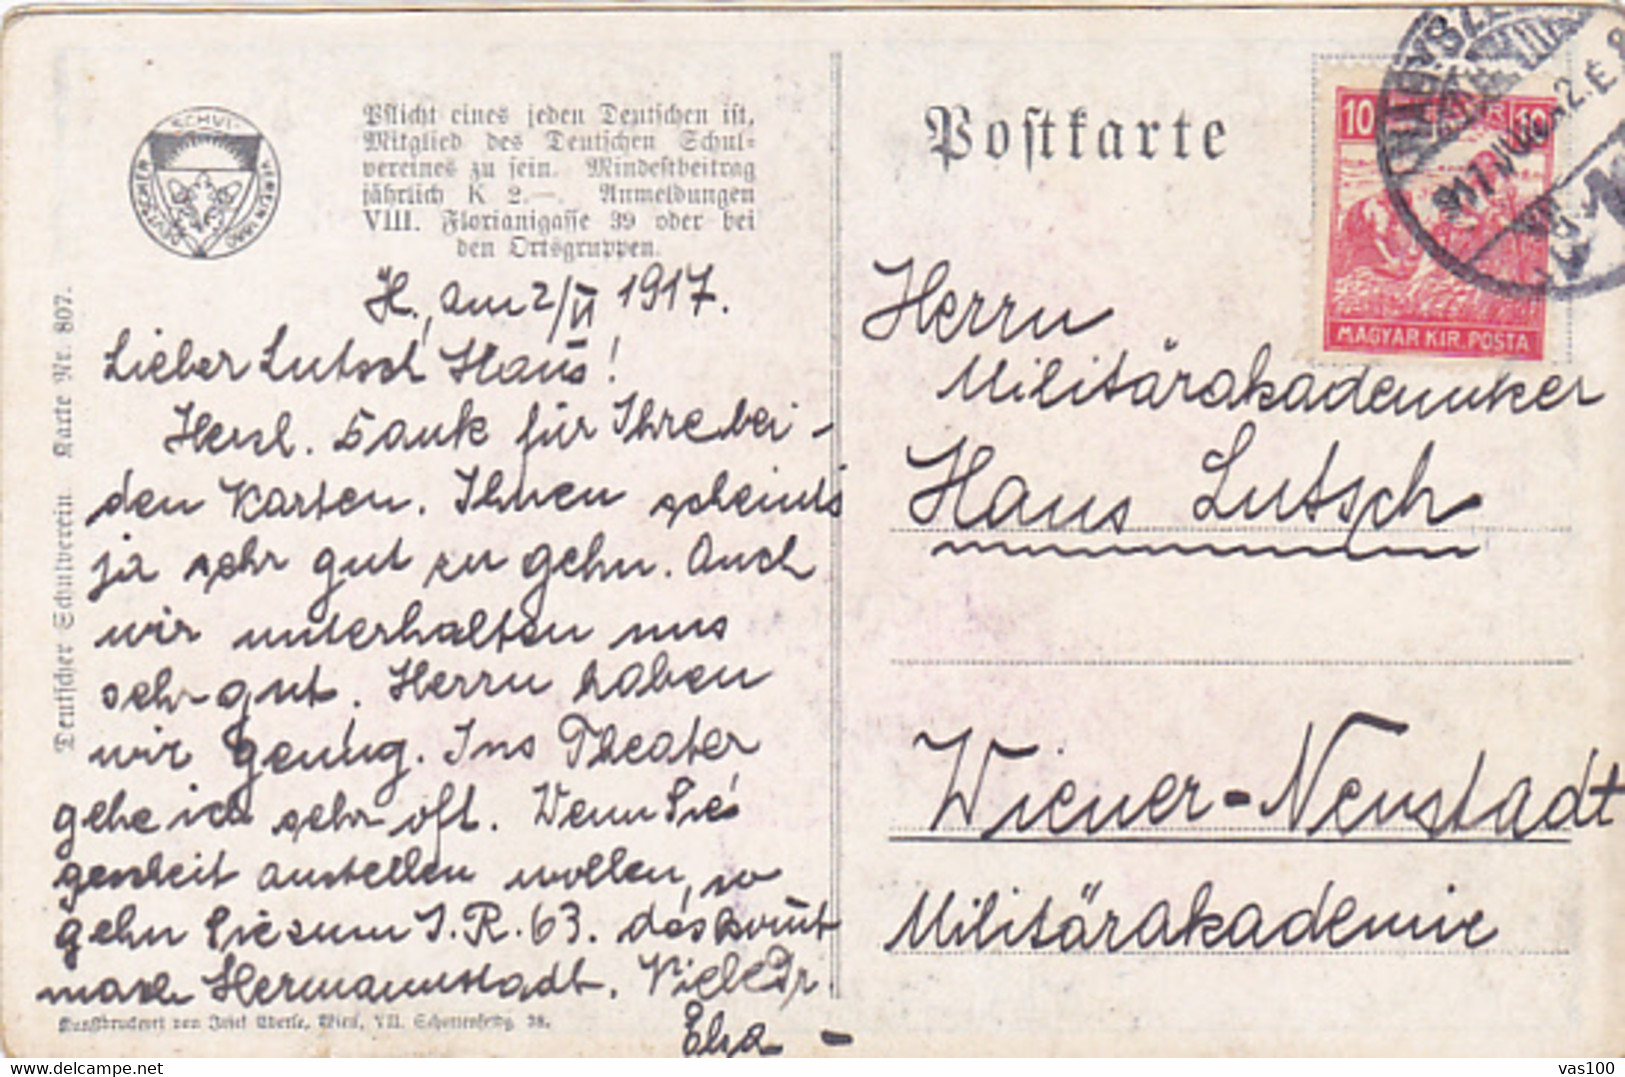 Pflicht eines jeden Deutschen ist,
Mitglied des Deutschen Schul=
vereines zu sein. Mindestbeitrag
jährlich K 2.—. Anmeldungen
VIII. Florianigasse 39 oder bei
den Ortsgruppen.
Deutscher Schulverein. Karte Nr. 807.
H., am 2/VI 1917.
Lieber Lutsch Hans!
Herzl. Dank für Ihre bei-
den Karten. Ihnen scheints
ja sehr gut zu gehn. Auch
wir unterhalten uns
sehr gut. Herrn haben
wir genug. Ins Theater
gehe ich sehr oft. Wenn Sie
gescheit anstellen wollen, so
gehn Sie zum I.R. 63. das kommt
nach Hermannstadt. Viele Gr.
Elsa –
Kunstdruckerei von Josef Eberle, Wien, VII. Schottenfeldg. 38.
Postkarte
10 10
MAGYAR KIR. POSTA
NAGYSZEBEN
Herrn
Militärakademiker
Hans Lutsch
Wiener-Neustadt
Militärakademie
vas100